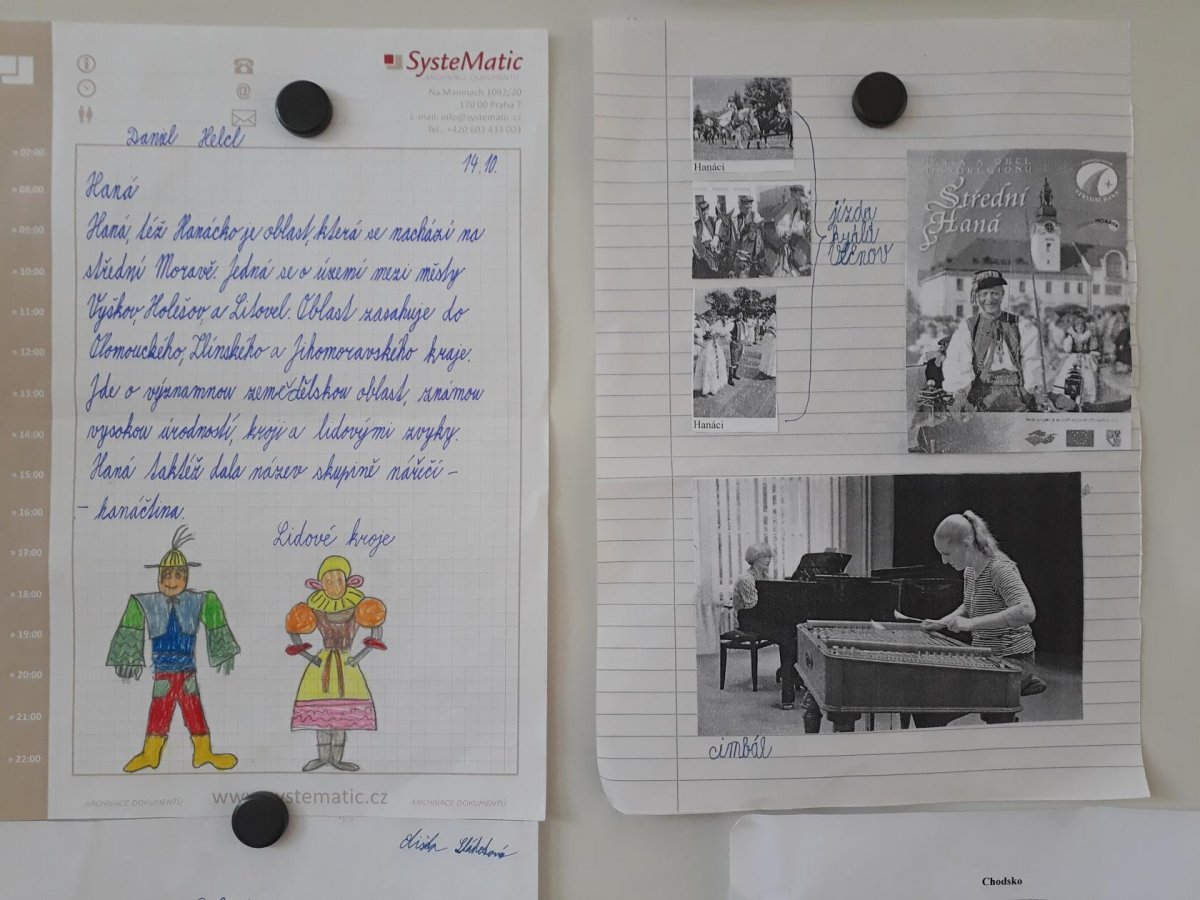 SysteMatic
ARCHIVACE DOKUMENTŮ
Na Maninách 1092/20
170 00 Praha 7
E-mail: info@systematic.cz
Tel.: +420 603 433 003
Daniel Helcl
14.10.
Haná
Haná, též Hanácko je oblast, která se nachází na
střední Moravě. Jedná se o území mezi městy
Vyškov, Holešov, a Litovel. Oblast zasahuje do
Olomouckého, Zlínského a Jihomoravského kraje.
Jde o významnou zemědělskou oblast, známou
vysokou úrodností, kroji a lidovými zvyky.
Haná taktéž dala název skupině nářečí –
– hanáčtina.
Lidové kroje
» 07:00
» 08:00
» 09:00
» 10:00
» 11:00
» 12:00
» 13:00
» 14:00
» 15:00
» 16:00
» 17:00
» 18:00
» 19:00
» 20:00
» 21:00
» 22:00
ARCHIVACE DOKUMENTŮ
ystematic.cz
ARCHIVACE DOKUMENTŮ
Hanáci
Hanáci
jízda
králů
Vlčnov
MĚSTA A OBCE
MIKROREGIONU
Střední
Haná
STŘEDNÍ HANÁ
MORAVA
cimbál
Chodsko